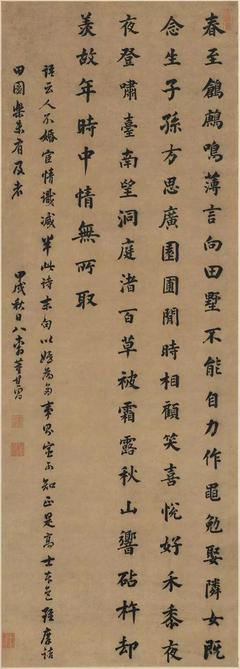 春至鶬鶊鳴薄言向田墅不能自力作黽勉娶隣女既
念生子孫方思廣園圃閒時相顧笑喜悅好禾黍夜
夜登嘯臺南望洞庭渚百草被霜露秋山響砧杵却
羨故年時中情無所取
語云人不婚宦情讖減半此詩末句以婚為多事累宦不知正是高士本色 摩詰
田園樂未有及者
甲戌秋日八 董其昌